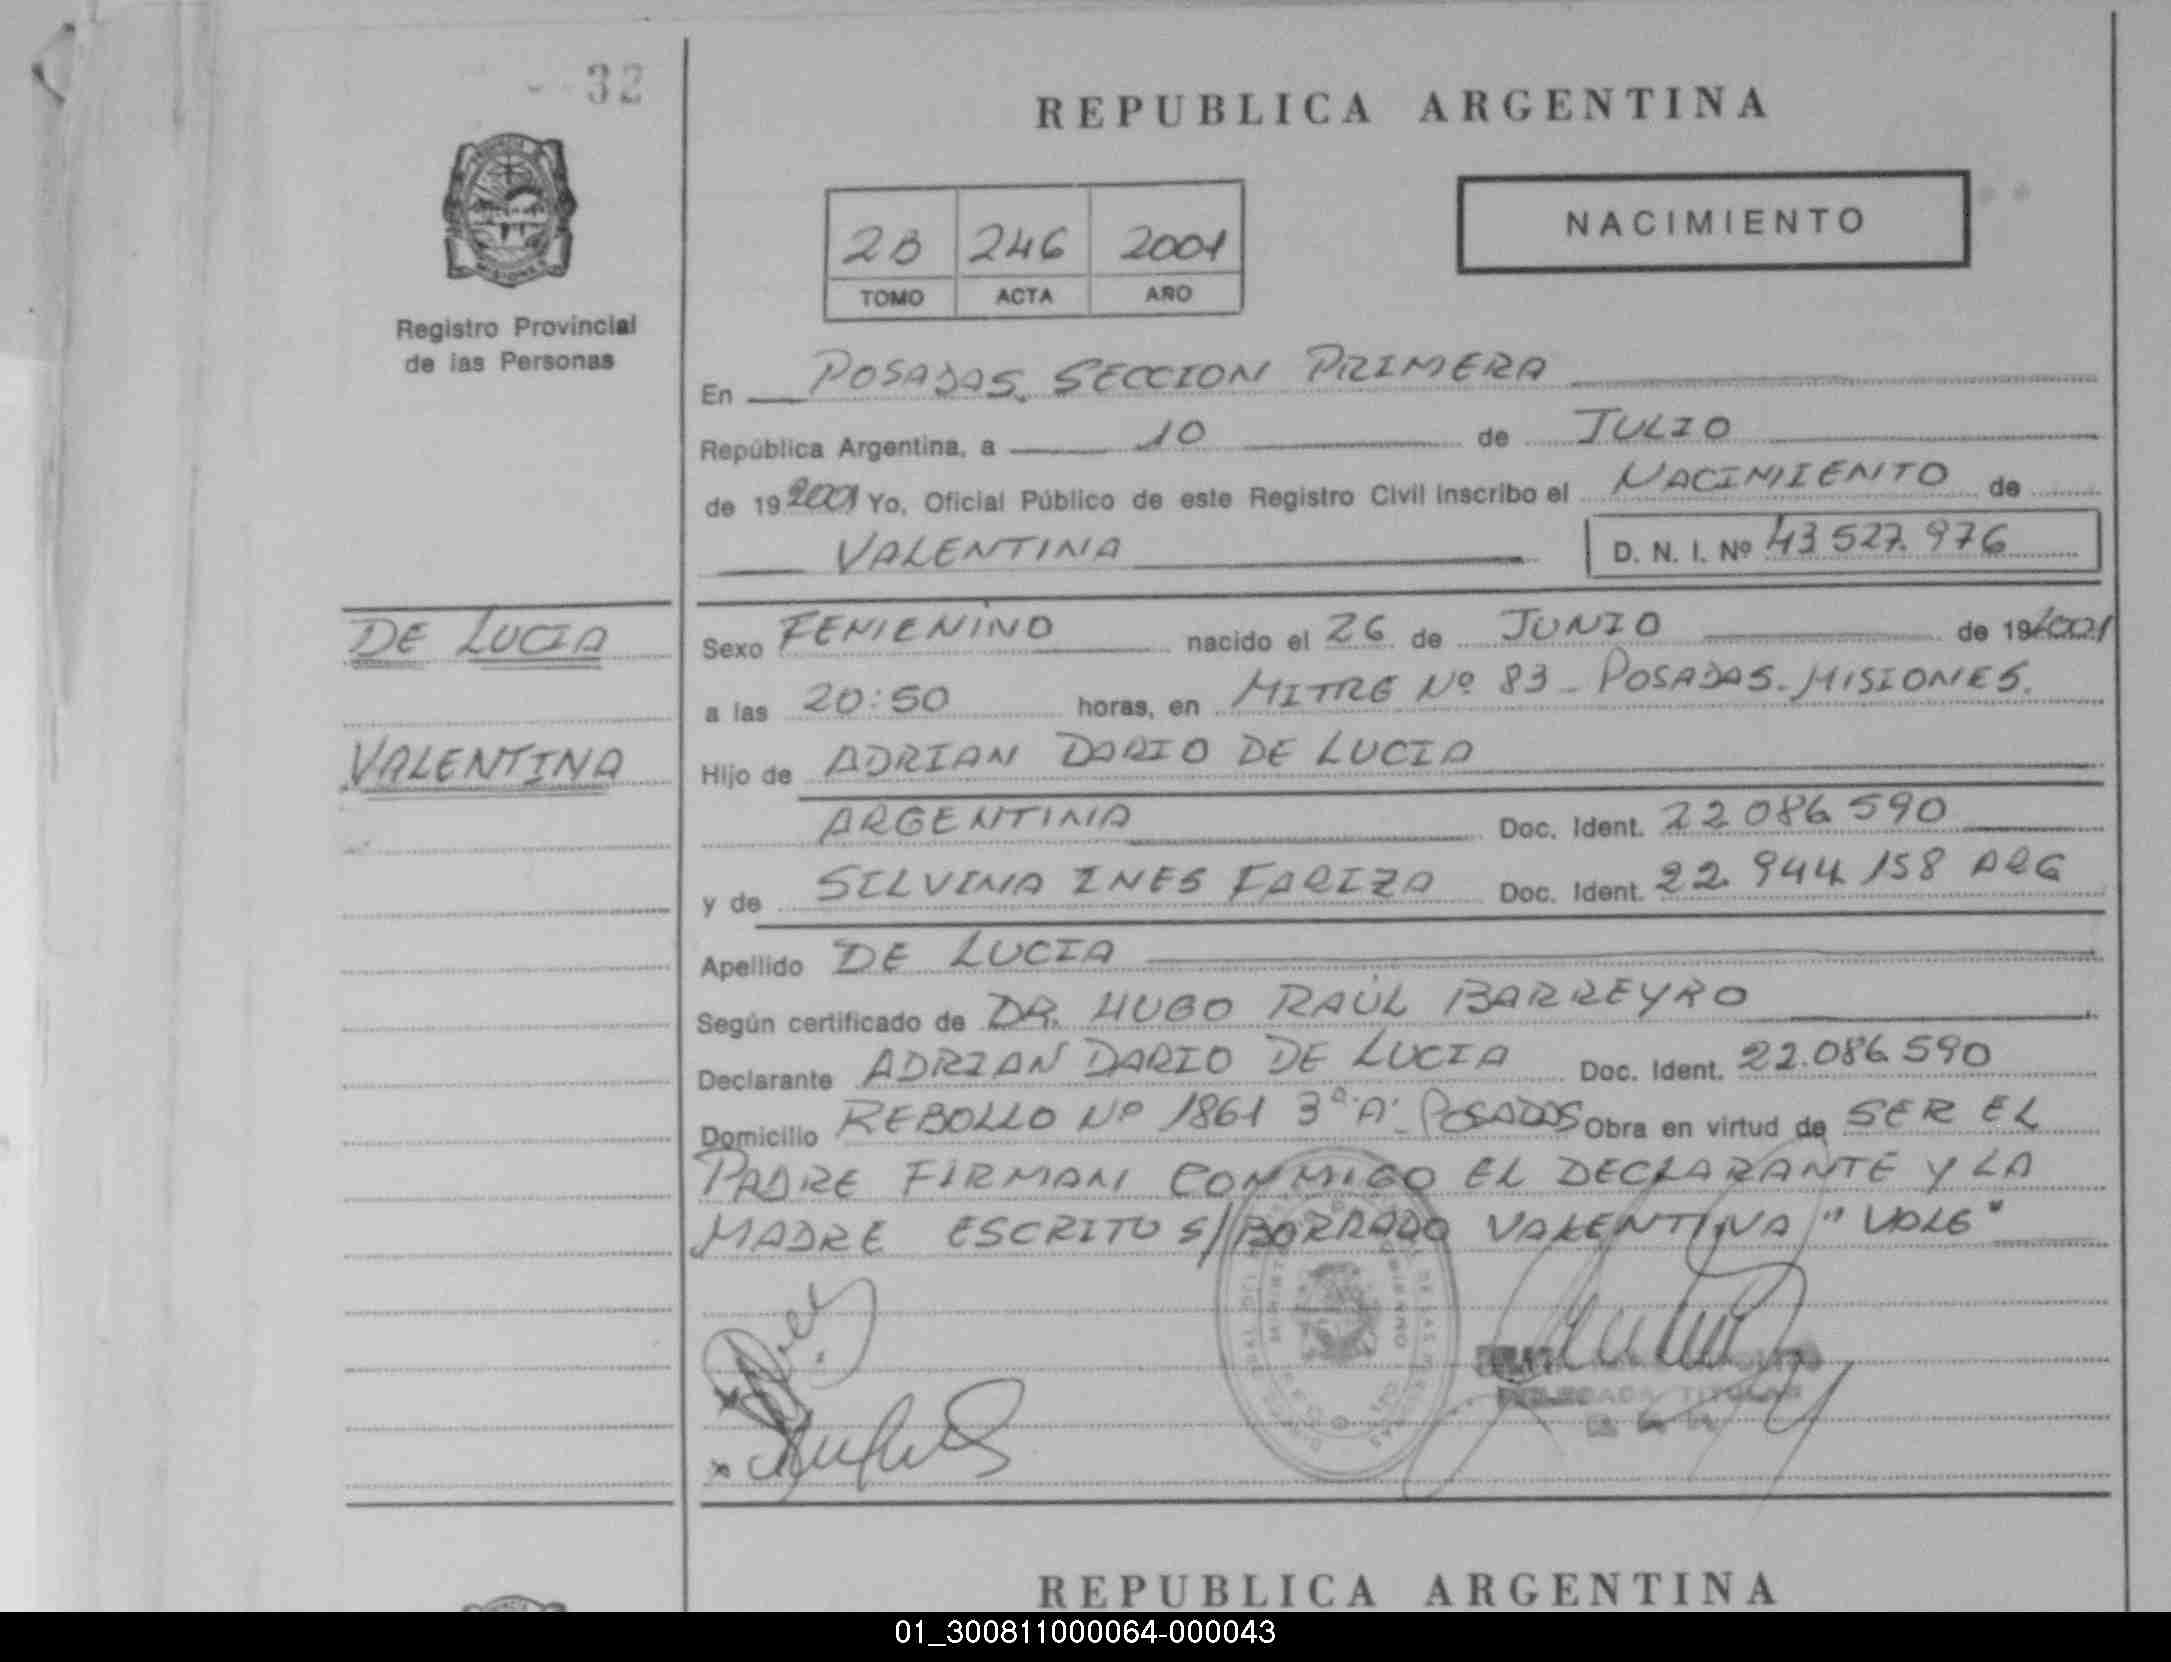 32
REPUBLICA ARGENTINA
NACIMIENTO
2B 246 2001
TOMO ACTA AÑO
Registro Provincial
de las Personas
En POSADAS. SECCION PRIMERA
República Argentina, a 10 de JULIO
de 19 2001 Yo, Oficial Público de este Registro Civil inscribo el NACIMIENTO de
VALENTINA D. N. I. Nº 43 527. 976
DE LUCIA
VALENTINA
Sexo FEMENINO nacido el 26 de JUNIO de 19 2001
a las 20:50 horas, en MITRE Nº 83 - POSADAS - MISIONES.
Hijo de ADRIAN DARIO DE LUCIA
ARGENTINA Doc. Ident. 22 086 590
y de SILVINA INES FARIZA Doc. Ident. 22. 944 158 ARG
Apellido DE LUCIA
Según certificado de DR. HUGO RAÚL BARREYRO
Declarante ADRIAN DARIO DE LUCIA Doc. Ident. 22.086 590
Domicilio REBOLLO Nº 1861 3º "A" - POSADAS Obra en virtud de SER EL
PADRE FIRMAN CONMIGO EL DECLARANTE Y LA
MADRE ESCRITO S/BORRADO VALENTINA "VALE"
DELEGADA TITULAR
REPUBLICA ARGENTINA
01_300811000064-000043